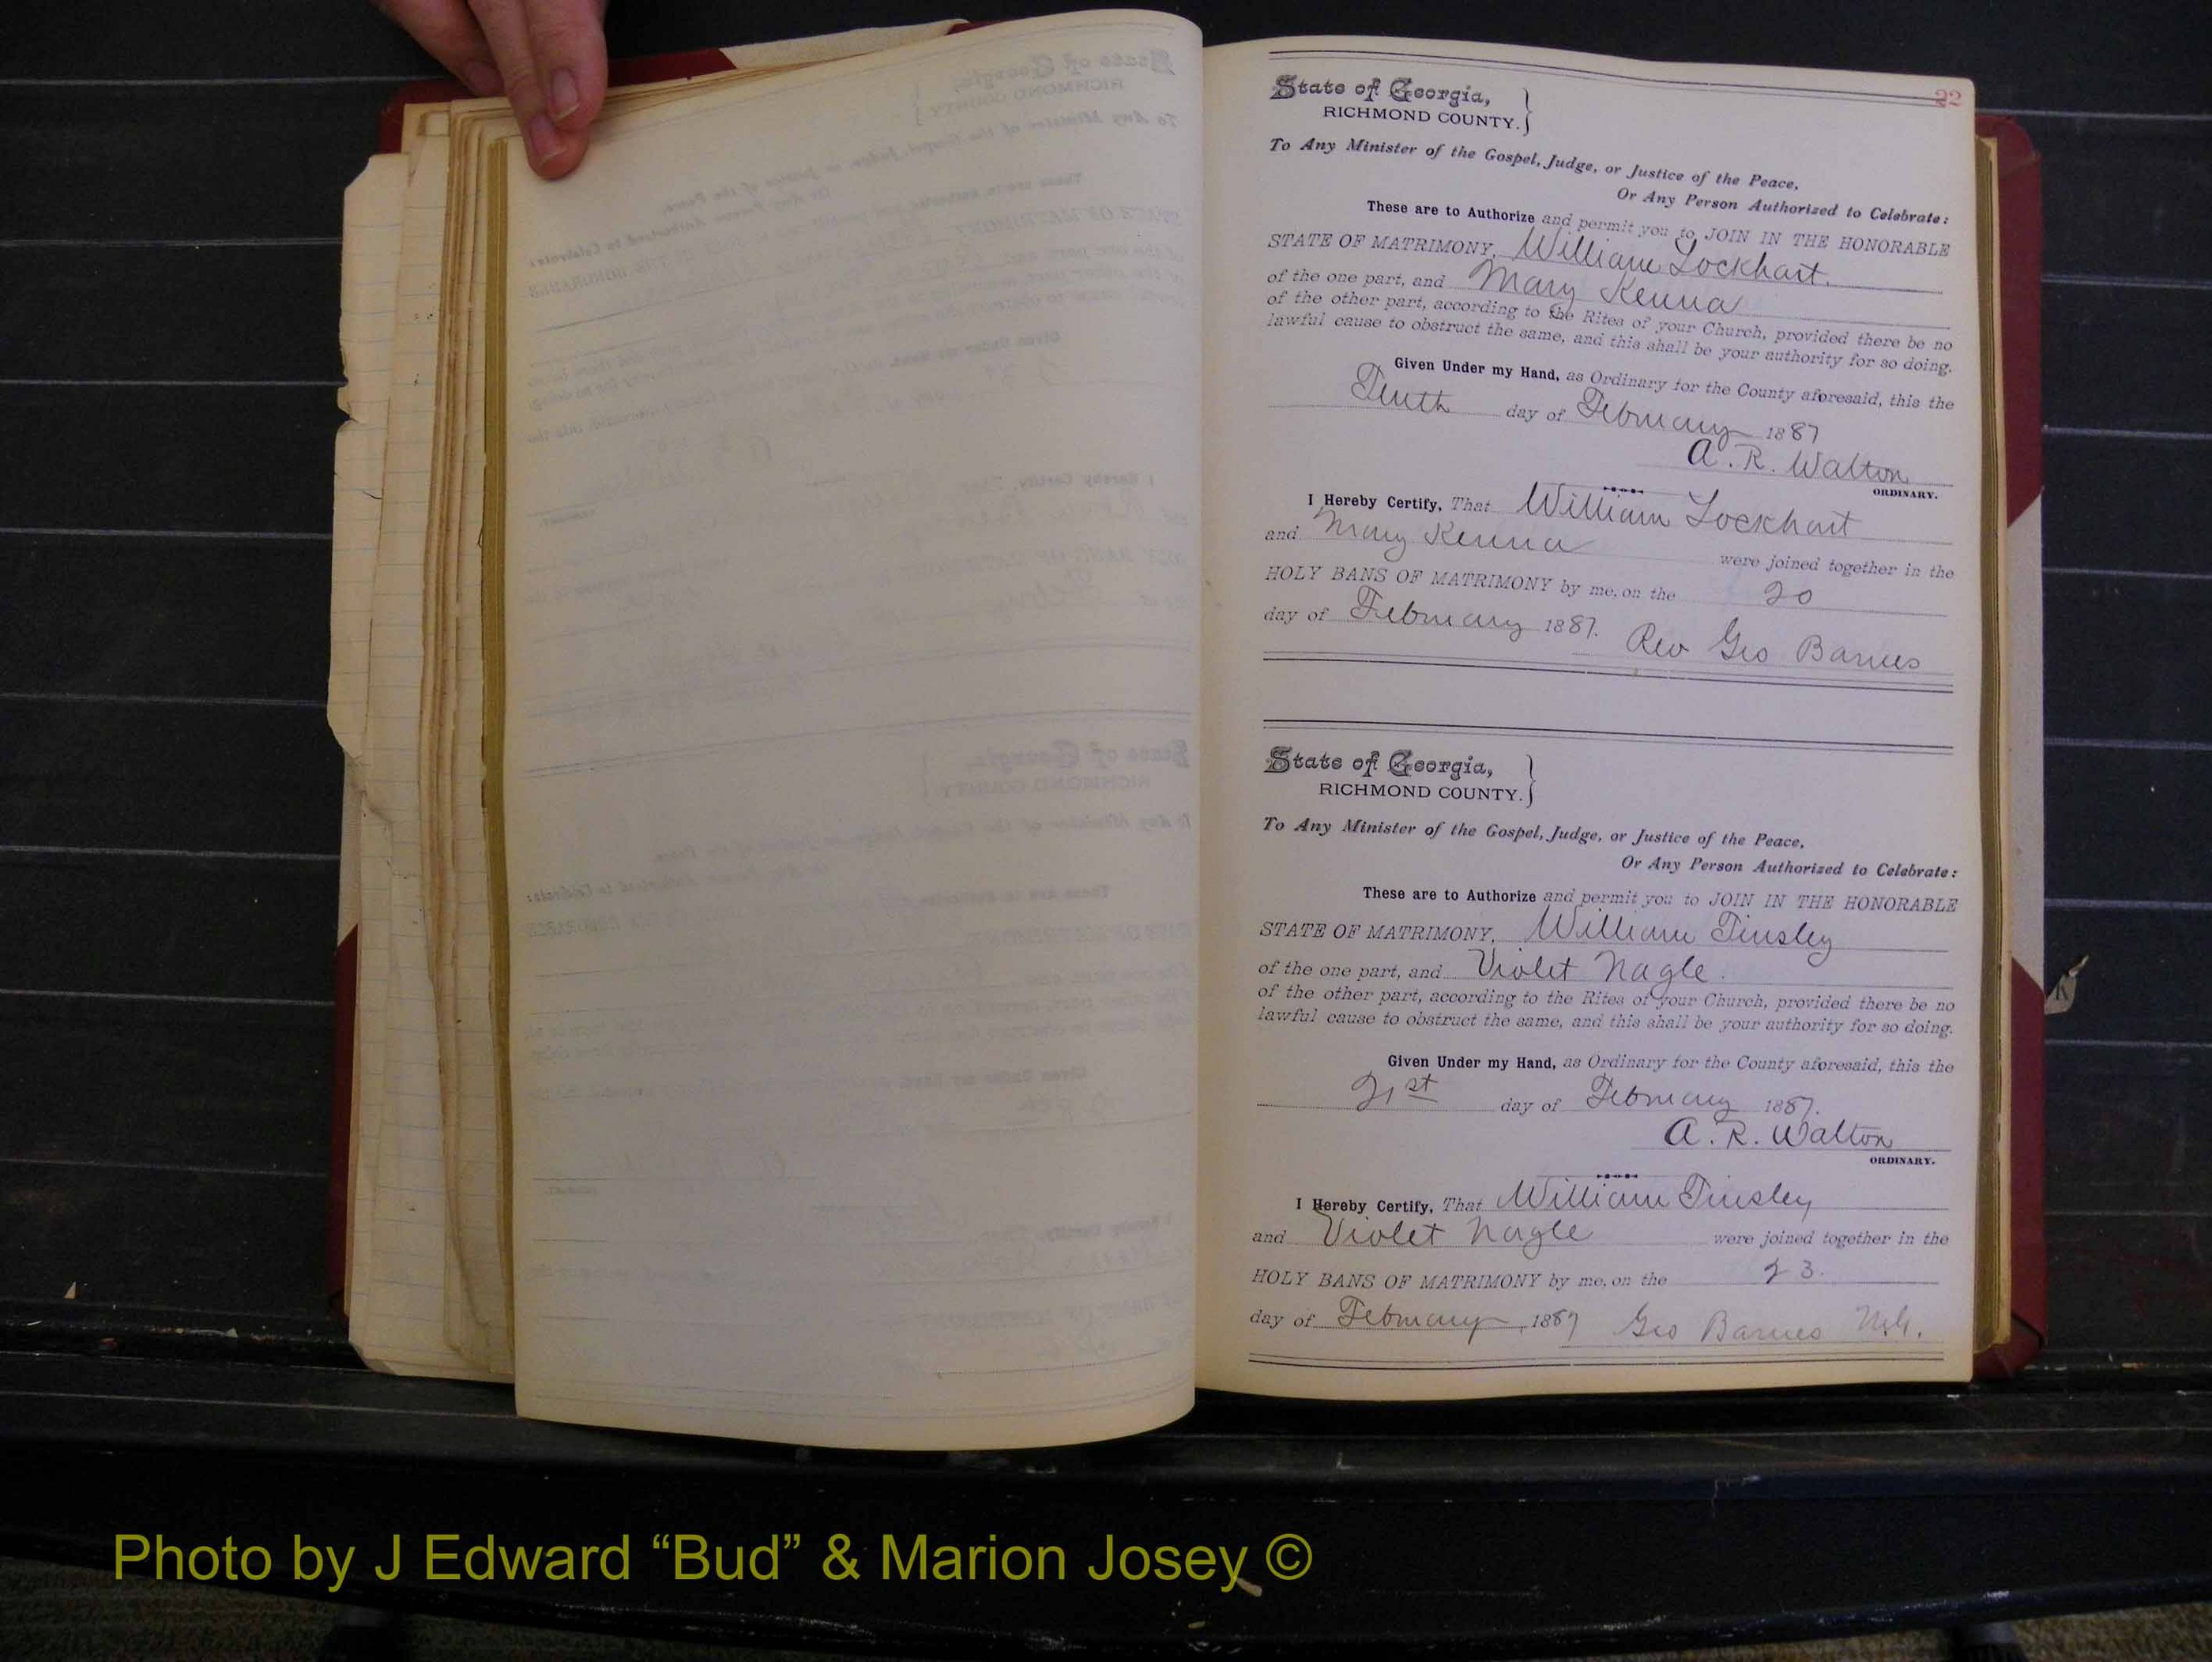 22
State of Georgia,
RICHMOND COUNTY.
To Any Minister of the Gospel, Judge, or Justice of the Peace,
Or Any Person Authorized to Celebrate:
These are to Authorize and permit you to JOIN IN THE HONORABLE
STATE OF MATRIMONY, William Lockhart.
of the one part, and Mary Kenna
of the other part, according to the Rites of your Church, provided there be no
lawful cause to obstruct the same, and this shall be your authority for so doing.
Given Under my Hand, as Ordinary for the County aforesaid, this the
Tenth day of February 1887
A. R. Walton
ORDINARY.
I Hereby Certify, That William Lockhart
and Mary Kenna were joined together in the
HOLY BANS OF MATRIMONY by me, on the 20
day of February 1887. Rev Geo Barnes
State of Georgia,
RICHMOND COUNTY.
To Any Minister of the Gospel, Judge, or Justice of the Peace,
Or Any Person Authorized to Celebrate:
These are to Authorize and permit you to JOIN IN THE HONORABLE
STATE OF MATRIMONY, William Tinsley
of the one part, and Violet Nagle.
of the other part, according to the Rites of your Church, provided there be no
lawful cause to obstruct the same, and this shall be your authority for so doing.
Given Under my Hand, as Ordinary for the County aforesaid, this the
21st day of February 1887.
A. R. Walton
ORDINARY.
I Hereby Certify, That William Tinsley
and Violet Nagle were joined together in the
HOLY BANS OF MATRIMONY by me, on the 23.
day of February, 1887 Geo Barnes M.G.
K
Photo by J Edward “Bud” & Marion Josey ©